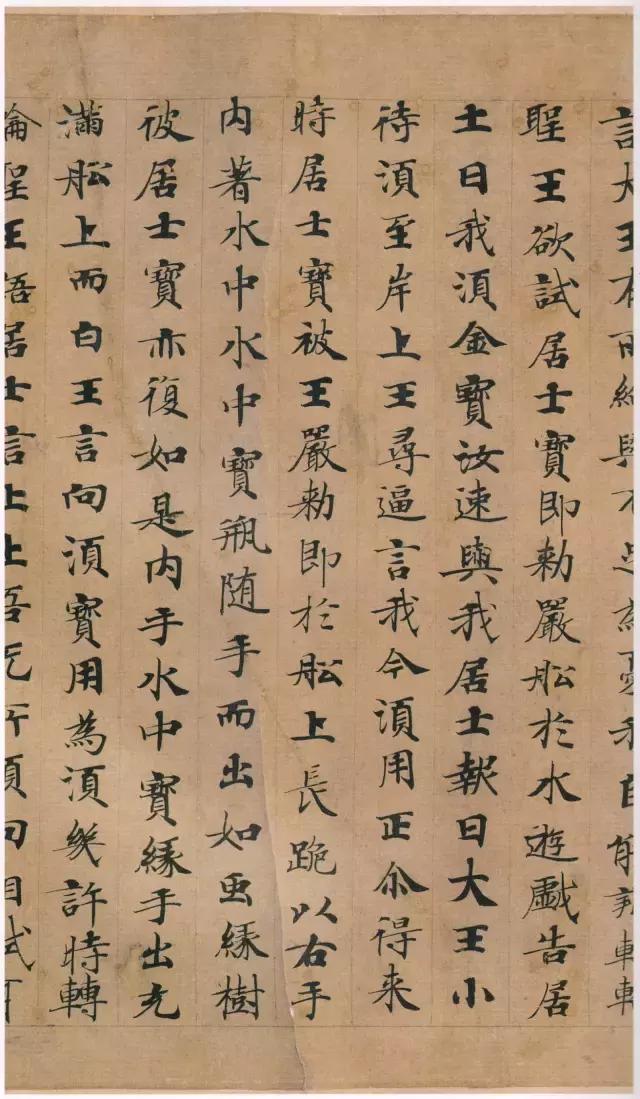 言大王有所給與不足為憂我自能
聖王欲試居士寶即勅嚴舩於水遊戲告居
士曰我湏金寶汝速與我居士報曰大王小
待湏至岸上王尋逼言我今湏用正尒得来
時居士寶被王嚴勅即於舩上長跪以右手
内著水中水中寶瓶随手而出如虫緣樹
彼居士寶亦復如是内手水中寶緣手出充
滿舩上而白王言向湏寶用為湏幾許時轉
輪聖王語居士言止止吾无所湏向相試耳